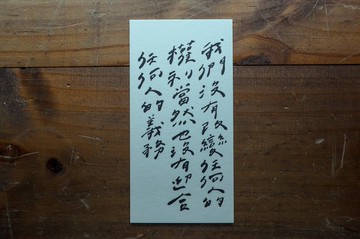 我們沒有改變任何人的
權利當然也沒有迎合
任何人的義務